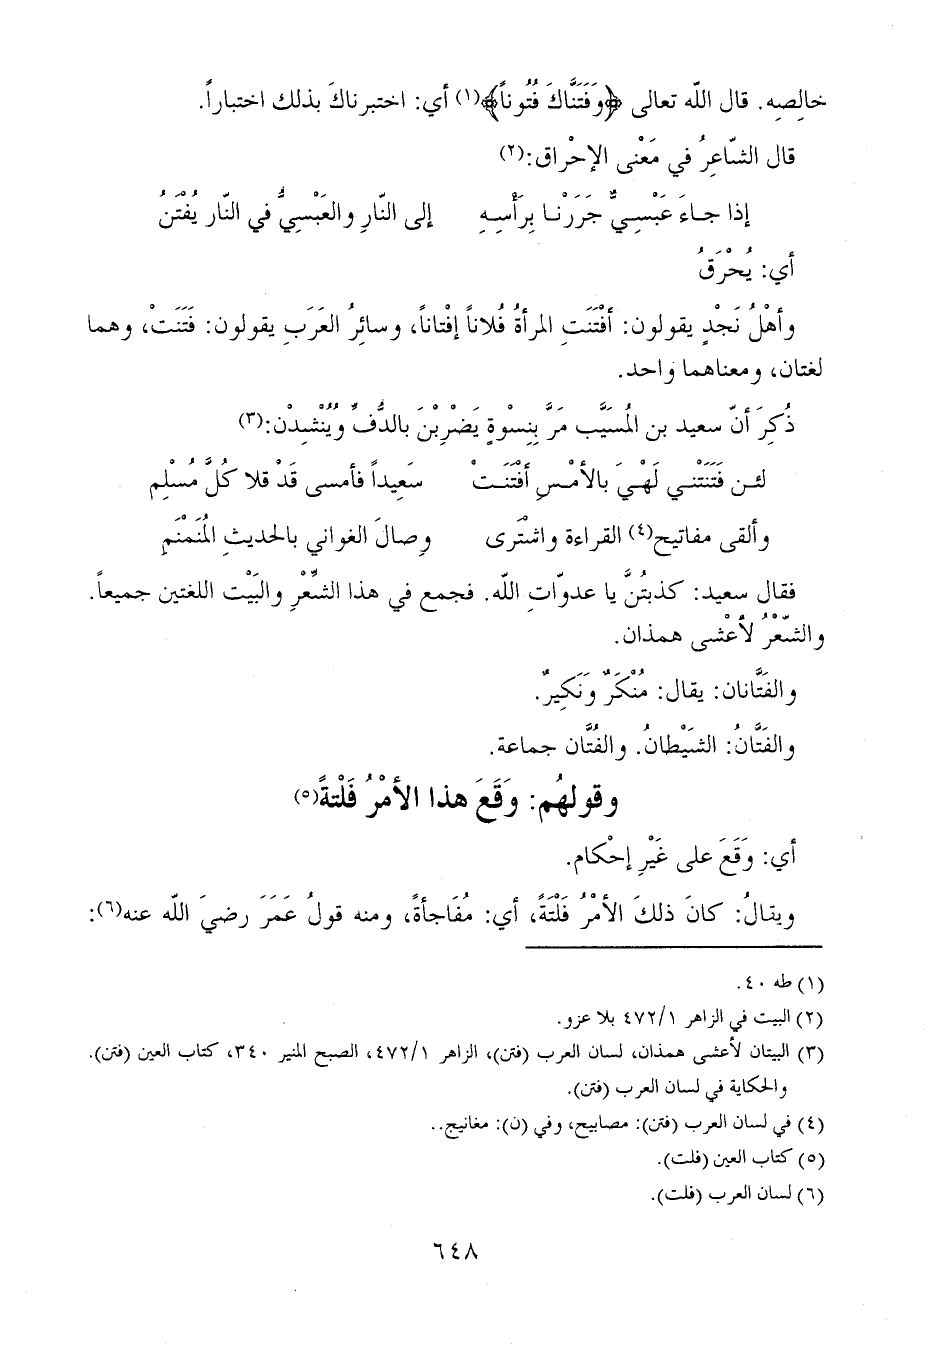 خالِصِه. قال اللّه تعالى ﴿وَفَتَنَّاكَ فُتُوناً﴾(١) أي: اختبرناكَ بذلك اختباراً.
قال الشّاعِرُ في مَعْنى الإحْراق:(٢)
إذا جاءَ عَبْسيٌّ جَرَرْنا بِرَأْسِهِ إلى النّارِ والعَبْسِيُّ في النّار يُفْتَنُ
أي: يُحْرَقُ
وأهْلُ نَجْدٍ يقولون: أفْتَنَتِ المرأةُ فُلاناً إفْتاناً، وسائِرُ العَرَبِ يقولون: فَتَنَتْ، وهما
لغتان، ومعناهما واحد.
ذُكِرَ أنّ سعيد بن المُسَيَّب مَرَّ بِنِسْوةٍ يَضْرِبْنَ بالدُّفِّ ويُنْشِدْن:(٣)
لئن فَتَنَتْني لَهْيَ بالأمْسِ أفْتَنَتْ سَعِيداً فأمسى قَدْ قلا كُلَّ مُسْلِم
وألقى مفاتيح(٤) القراءة واشْتَرى وِصالَ الغواني بالحديثِ المُنَمْنَم
فقال سعيد: كذبتُنَّ يا عدوّاتِ اللّه. فجمع في هذا الشِّعْرِ والبَيْت اللغتين جميعاً.
والشّعْرُ لأعْشى همذان.
والفَتَّانان: يقال: مُنْكَرٌ وَنَكِيرٌ.
والفَتَّانُ: الشَيْطانُ. والفُتَّان جماعة.
وقولهُم: وَقَعَ هذا الأمْرُ فَلْتةً(٥)
أي: وَقَعَ على غَيْرِ إحْكام.
ويقالُ: كانَ ذلكَ الأمْرُ فَلْتَةً، أي: مُفَاجأةً، ومنه قولُ عَمَرَ رضيَ اللّه عنه(٦):
(١) طه ٤٠.
(٢) البيت في الزاهر ٤٧٢/١ بلا عزو.
(٣) البيتان لأعشى همذان، لسان العرب (فتن)، الزاهر ٤٧٢/١، الصبح المنير ٣٤٠، كتاب العين (فتن).
والحكاية في لسان العرب (فتن).
(٤) في لسان العرب (فتن): مصابيح، وفي (ن): مغانيج..
(٥) كتاب العين (فلت).
(٦) لسان العرب (فلت).
٦٤٨